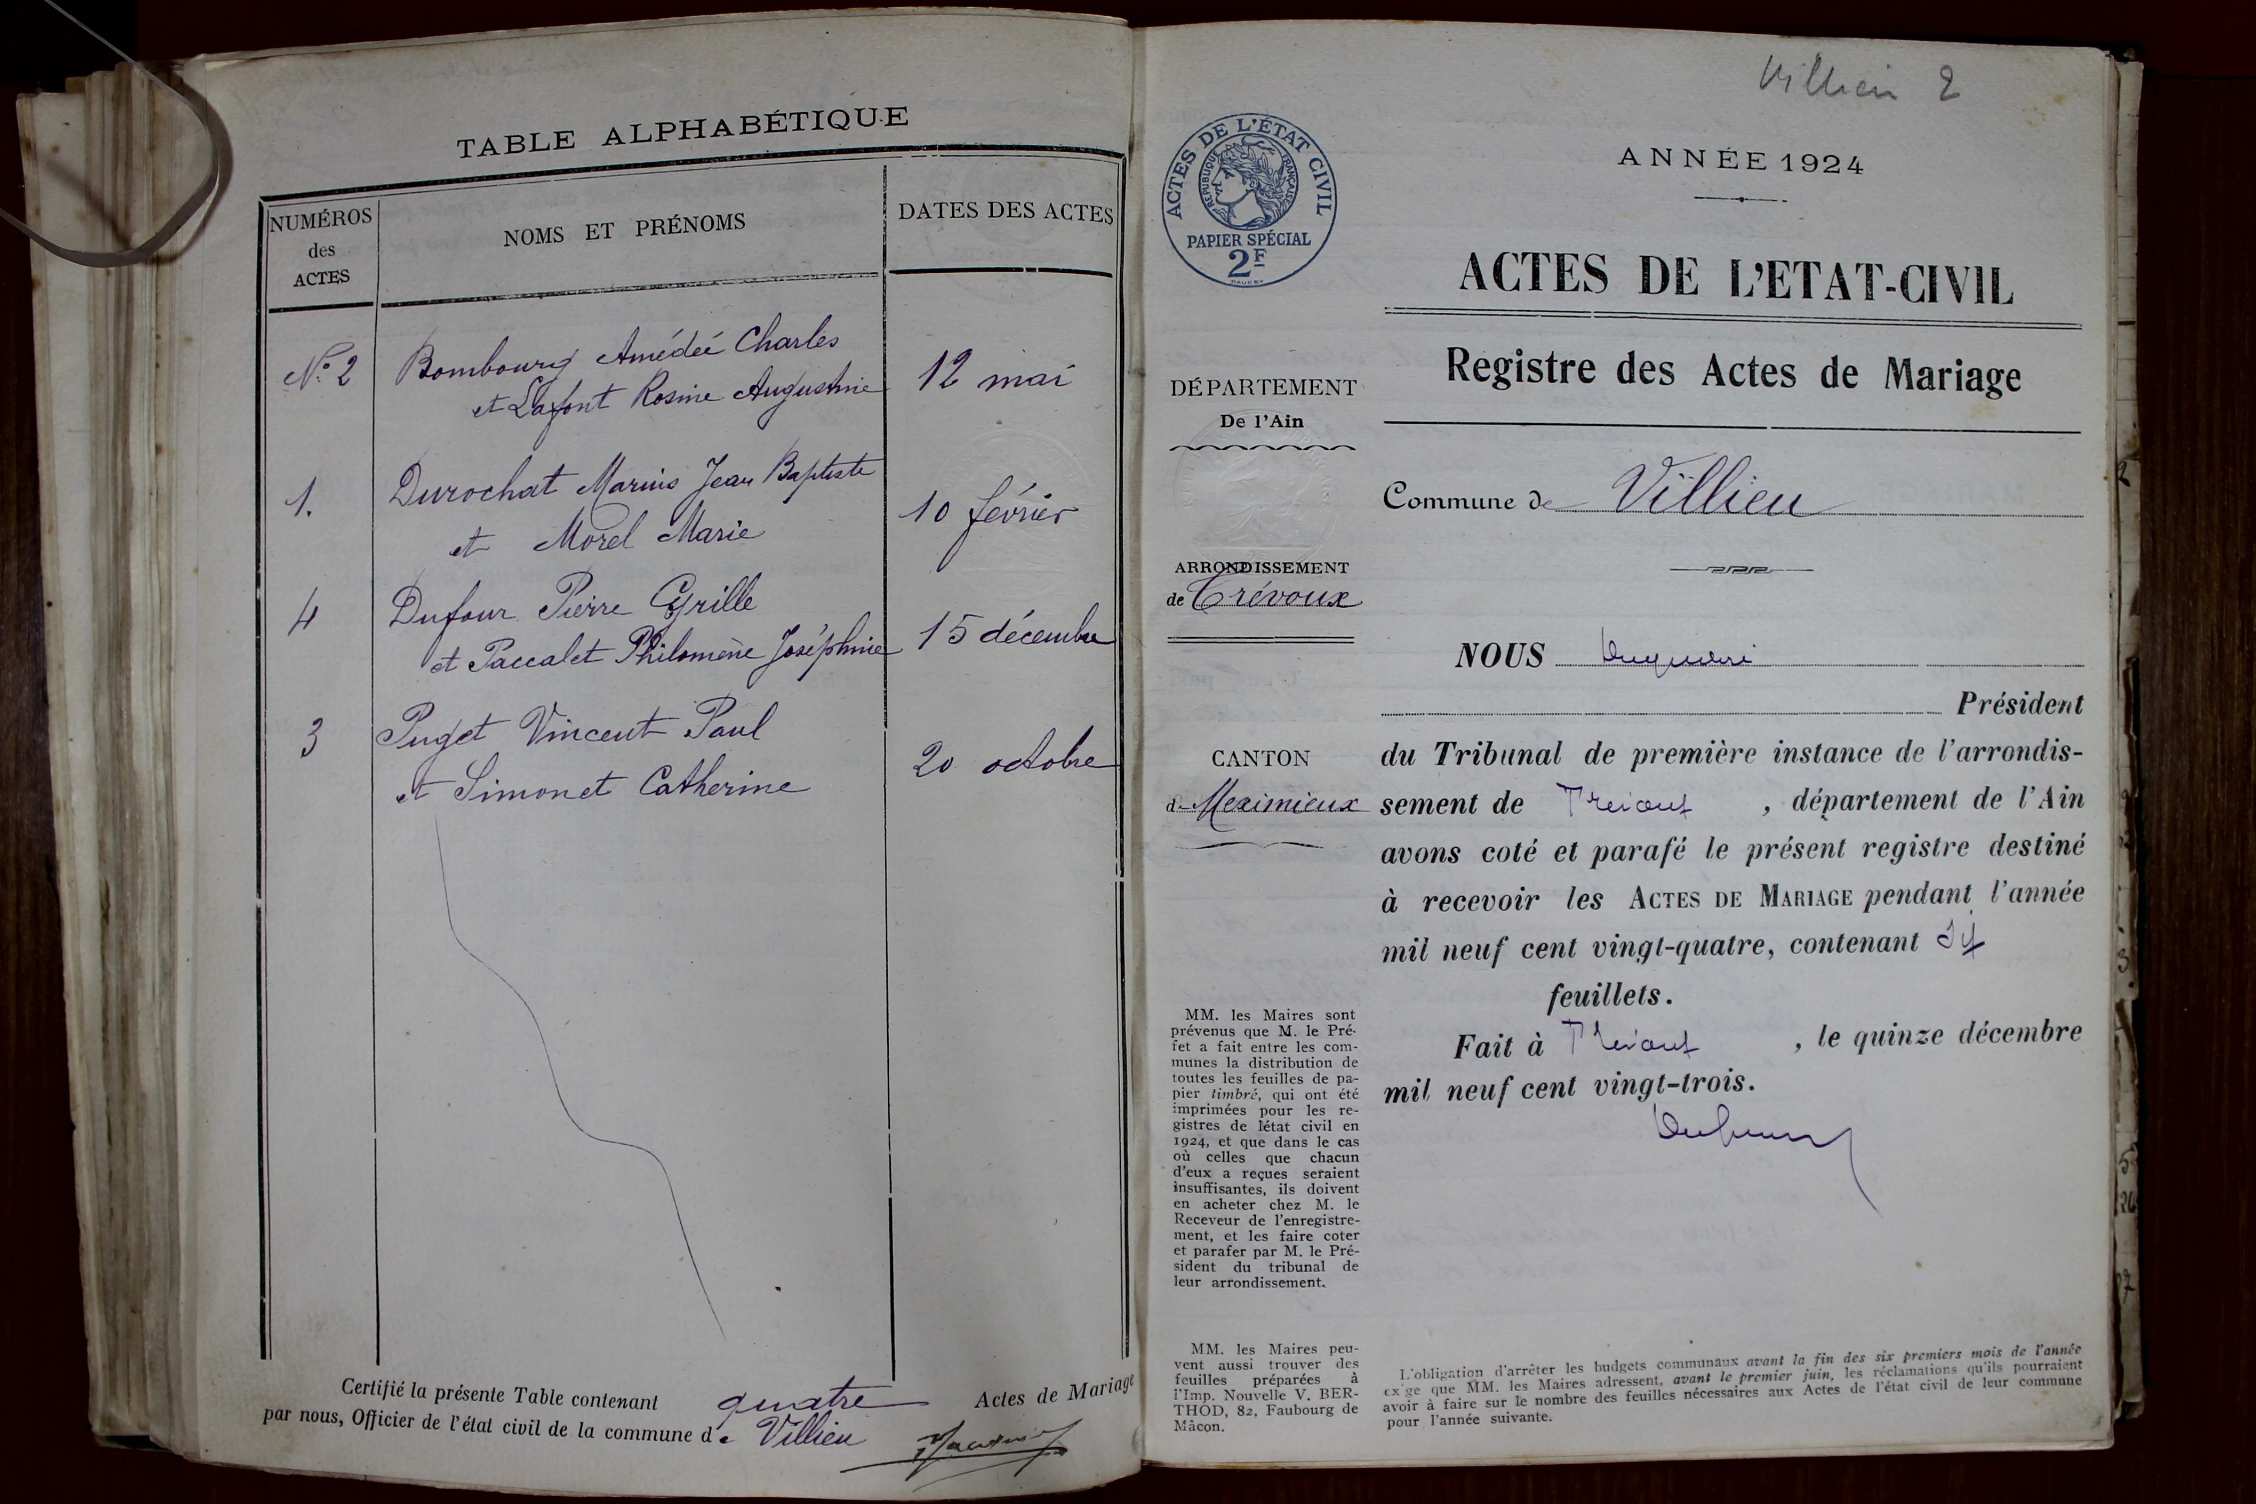 TABLE ALPHABÉTIQUE
NUMÉROS
des
ACTES
NOMS ET PRÉNOMS
DATES DES ACTES
N° 2
Bombourg Amédée Charles
et Lafont Rosine Augustine
12 mai
1.
Durochat Marius Jean Baptiste
et Morel Marie
10 février
4
Dufour Pierre Cyrille
et Paccalet Philomène Joséphine
15 décembre
3
Puget Vincent Paul
et Simonet Catherine
20 octobre
Certifié la présente Table contenant quatre Actes de Mariage
par nous, Officier de l'état civil de la commune de Villieu
Villieu 2
ACTES DE L'ÉTAT CIVIL
RÉPUBLIQUE FRANÇAISE
PAPIER SPÉCIAL
2F
ANNÉE 1924
ACTES DE L'ETAT-CIVIL
Registre des Actes de Mariage
DÉPARTEMENT
De l'Ain
Commune de Villieu
ARRONDISSEMENT
de Trévoux
CANTON
de Meximieux
NOUS
Président
du Tribunal de première instance de l'arrondis-
sement de Trévoux, département de l'Ain
avons coté et parafé le présent registre destiné
à recevoir les ACTES DE MARIAGE pendant l'année
mil neuf cent vingt-quatre, contenant
feuillets.
Fait à Trévoux, le quinze décembre
mil neuf cent vingt-trois.
MM. les Maires sont
prévenus que M. le Pré-
fet a fait entre les com-
munes la distribution de
toutes les feuilles de pa-
pier timbré, qui ont été
imprimées pour les re-
gistres de létat civil en
1924, et que dans le cas
où celles que chacun
d'eux a reçues seraient
insuffisantes, ils doivent
en acheter chez M. le
Receveur de l'enregistre-
ment, et les faire coter
et parafer par M. le Pré-
sident du tribunal de
leur arrondissement.
MM. les Maires peu-
vent aussi trouver des
feuilles préparées à
l'Imp. Nouvelle V. BER-
THOD, 82, Faubourg de
Mâcon.
L'obligation d'arrêter les budgets communaux avant la fin des six premiers mois de l'année
exige que MM. les Maires adressent, avant le premier juin, les réclamations qu'ils pourraient
avoir à faire sur le nombre des feuilles nécessaires aux Actes de l'état civil de leur commune
pour l'année suivante.